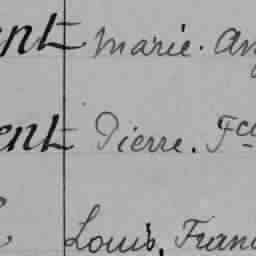 ent Marie. An
ent Pierre. Fco
Louis, Fran